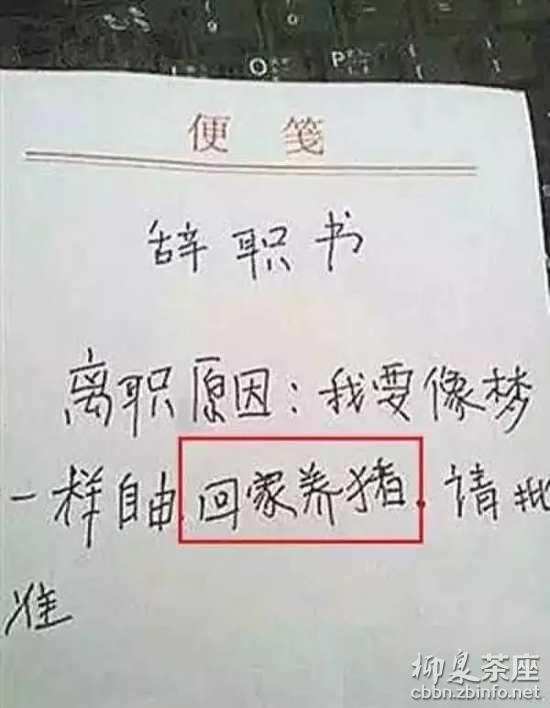 O
P
便笺
辞职书
离职原因：我要像梦
一样自由，回家养猪，请批
准
柳泉茶座
cbbn.zbinfo.net